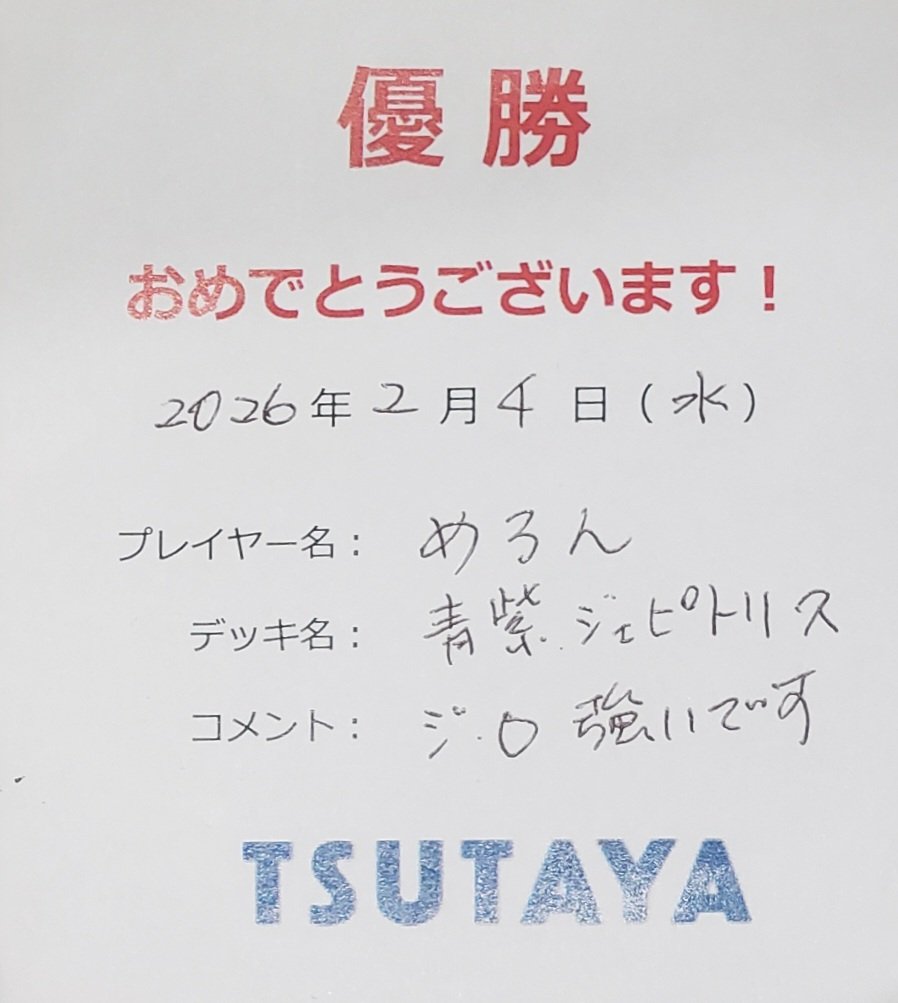 優勝
おめでとうございます！
2026年2月4日（水）
プレイヤー名： めろん
デッキ名： 青紫ジェピトリス
コメント： ジ.ロ 強いです
TSUTAYA